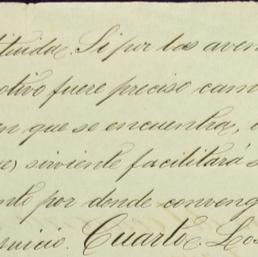 tituida. Si por las aven
otivo fuere preciso cam
en que se encuentra,
e) sirviente facilitará s
nto por donde conveng
rvicio. Cuarto. Los